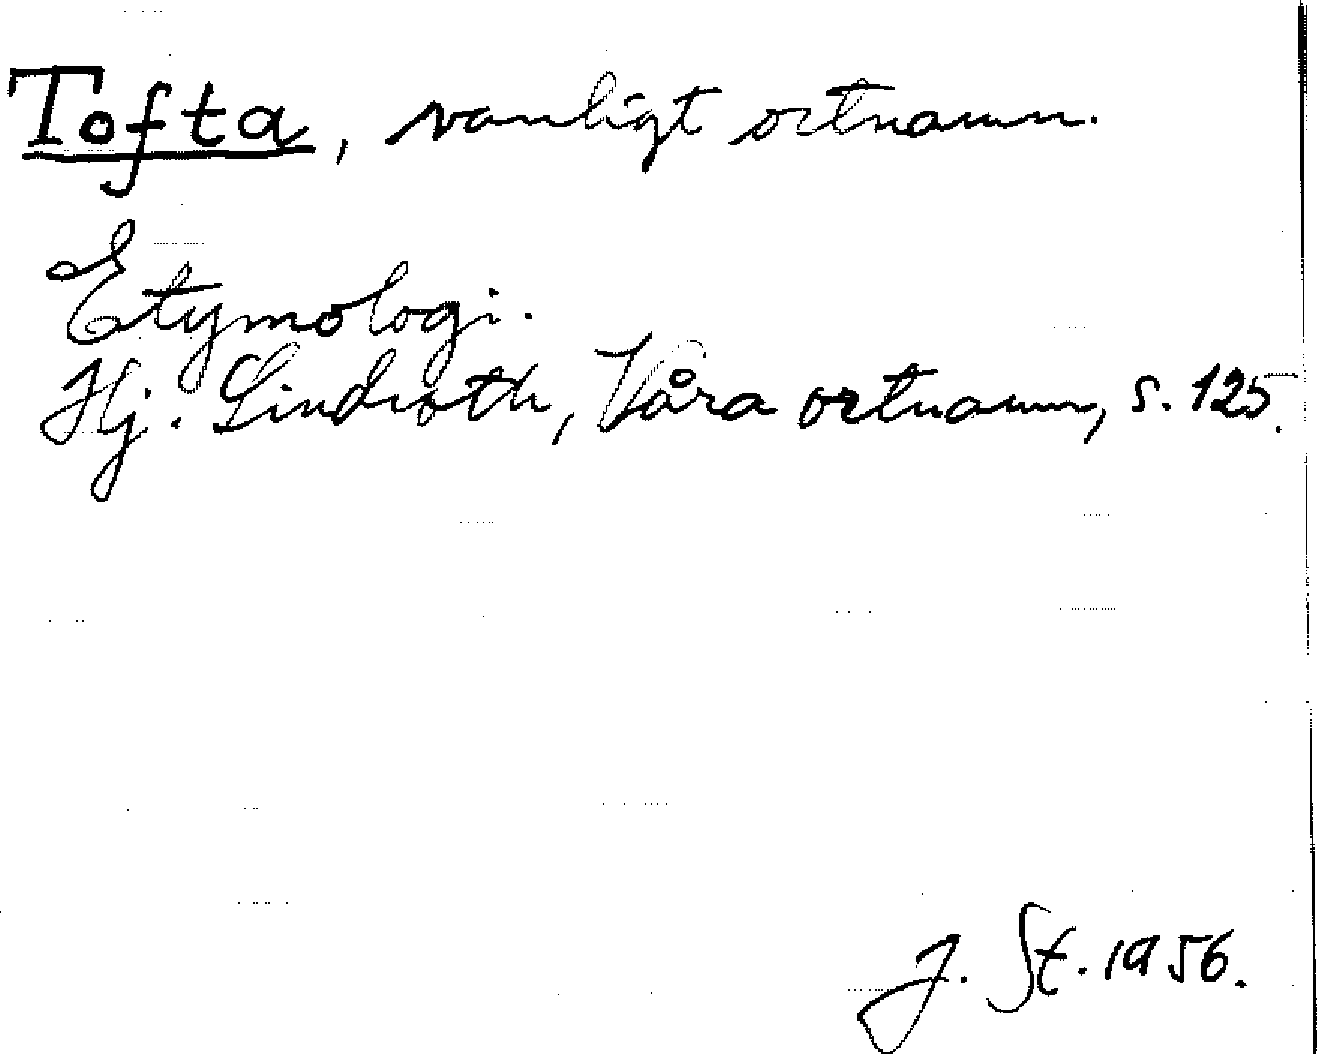 Tofta, vanligt ortnamn.
Etymologi.
Hj. Lindroth, Våra ortnamn, s. 125.
J. St. 1956.